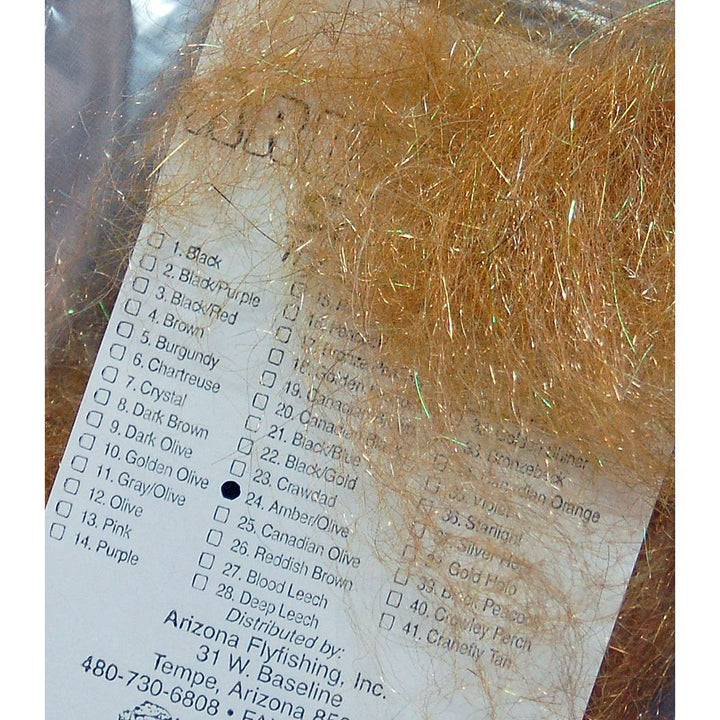 1. Black
2. Black/Purple
3. Black/Red
4. Brown
5. Burgundy
6. Chartreuse
7. Crystal
8. Dark Brown
9. Dark Olive
10. Golden Olive
11. Gray/Olive
12. Olive
13. Pink
14. Purple
15.
16.
17.
18. Golden
19. Canadian
20. Canadian
21. Black/Blue
22. Black/Gold
23. Crawdad
24. Amber/Olive
25. Canadian Olive
26. Reddish Brown
27. Blood Leech
28. Deep Leech
33. Bronzeback
Canadian Orange
35. Violet
36. Starlight
Silver
Gold Halo
39. Peacock
40. Crowley Perch
41. Cranefly Tan
Distributed by:
Arizona Flyfishing, Inc.
31 W. Baseline
Tempe, Arizona
480-730-6808 •